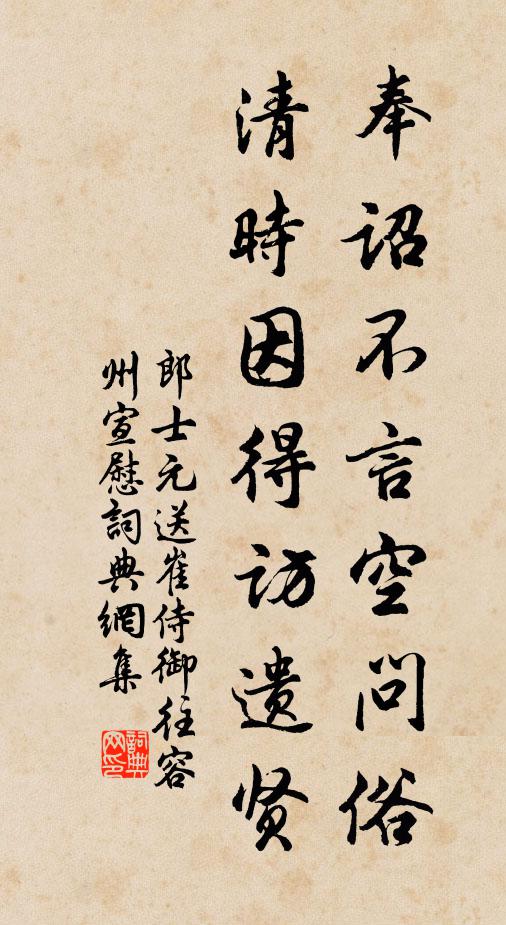 奉詔不言空問俗
清時因得訪遺贤
郎士元送崔侍御往容
州宣慰詞典網集
詞典
网印